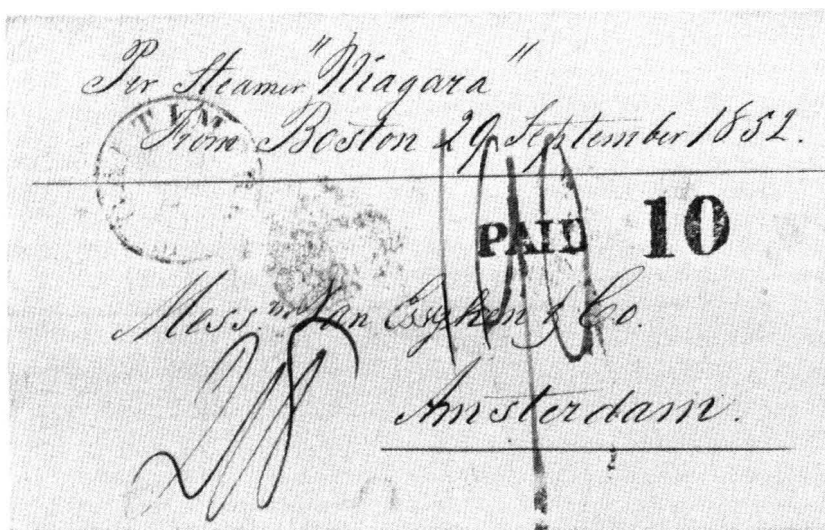 Per Steamer "Niagara"
From Boston 29 September 1852.
PAID 10
Mess.rs Van & Co.
Amsterdam.